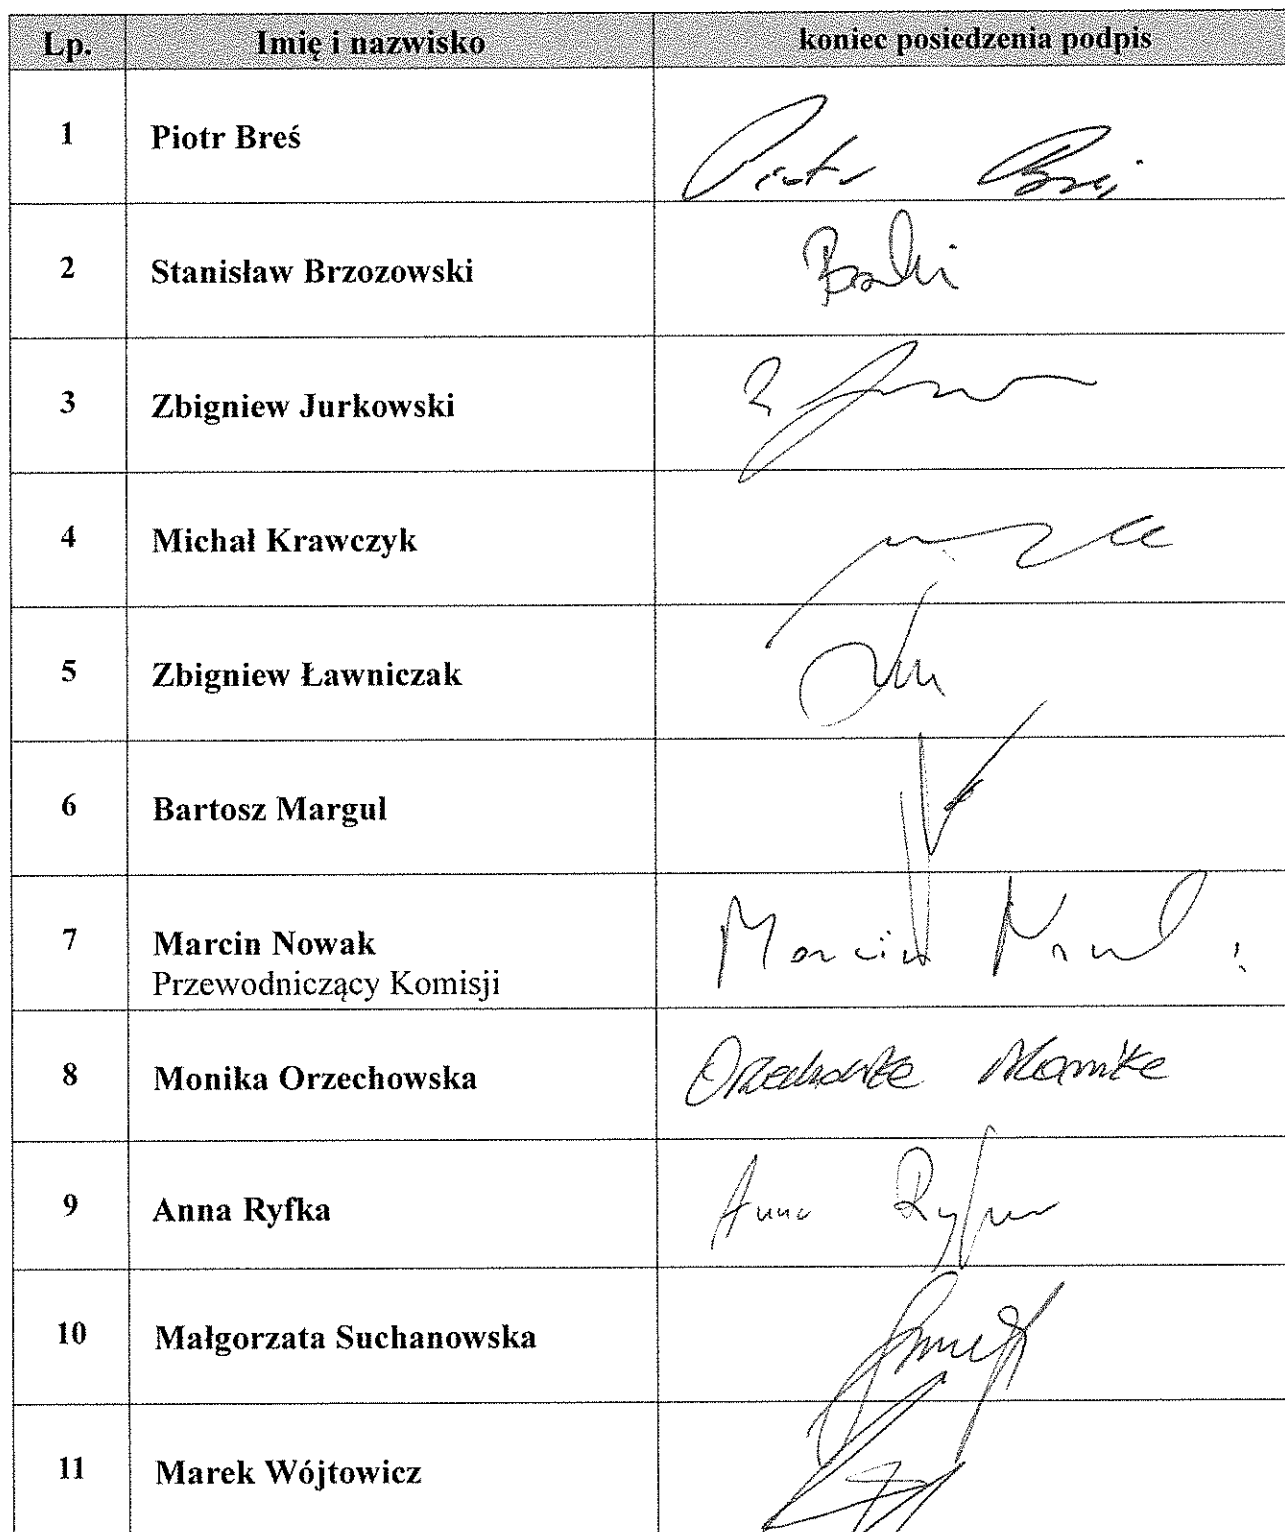 Lp. Imię i nazwisko koniec posiedzenia podpis
1 Piotr Breś Piotr Breś
2 Stanisław Brzozowski
3 Zbigniew Jurkowski
4 Michał Krawczyk
5 Zbigniew Ławniczak
6 Bartosz Margul
7 Marcin Nowak Marcin Nowak
Przewodniczący Komisji
8 Monika Orzechowska Orzechowska Monika
9 Anna Ryfka Anna Ryfka
10 Małgorzata Suchanowska
11 Marek Wójtowicz